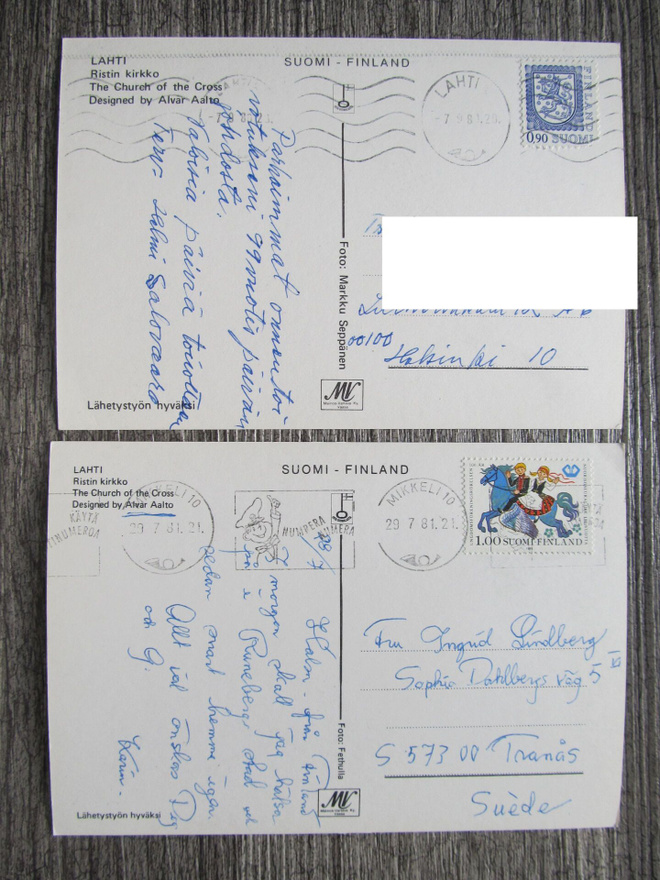 LAHTI
Ristin kirkko
The Church of the Cross
Designed by Alvar Aalto
SUOMI - FINLAND
LAHTI
-7.9.81.20.
0,90 SUOMI
FINLAND
Parhaimmat onnentoi
votukseni 99 päivän
johdosta.
Valoisia päiviä toivottaen
Terv. Salmi
Foto: Markku Seppänen
00100
Helsinki 10
MV
Lähetystyön hyväksi
LAHTI
Ristin kirkko
The Church of the Cross
Designed by Alvar Aalto
SUOMI - FINLAND
KÄYTÄ
TINUMEROA
MIKKELI 10
29 7 81.21.
NUMPERA
MIKKELI 10
29 7 81.21.
1.00 SUOMI-FINLAND
29/7
Halsn. från Finland
I morgon skall jag hälsa
på i Runebergs stad och
sedan snart hemma igen
Allt väl önskas Dig
och G.
Karin.
Foto: Fethulla
Fru Ingrid Lindberg
Sophia Dahlbergs väg 5
S 573 00 Tranås
Suède
MV
Lähetystyön hyväksi